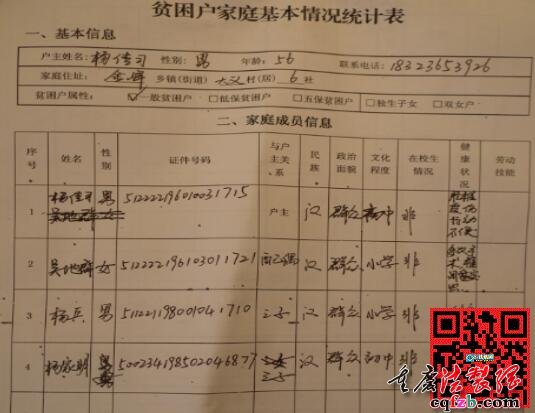 贫困户家庭基本情况统计表
一、基本信息
户主姓名：杨传司 性别：男 年龄：56 联系电话：18323653926
家庭住址： 金 乡镇（街道）大义村（居）6社
贫困户属性： ☑一般贫困户 □低保贫困户 □五保贫困户 □独生子女 □双女户
二、家庭成员信息
序号 姓名 性别 证件号码 与户主关系 民族 政治面貌 文化程度 在校生情况 健康状况 劳动技能
1 杨传司 男 512222196010031715 户主 汉 群众 高中 非
吴地群 女
2 吴地群 女 512222196103011721 配偶 汉 群众 小学 非
3 杨兵 男 51221198001041710 之子 汉 群众 小学 非
4 杨家明 男 500234198502046877 之子 汉 群众 初中 非
重庆法制网
cqfzb.com